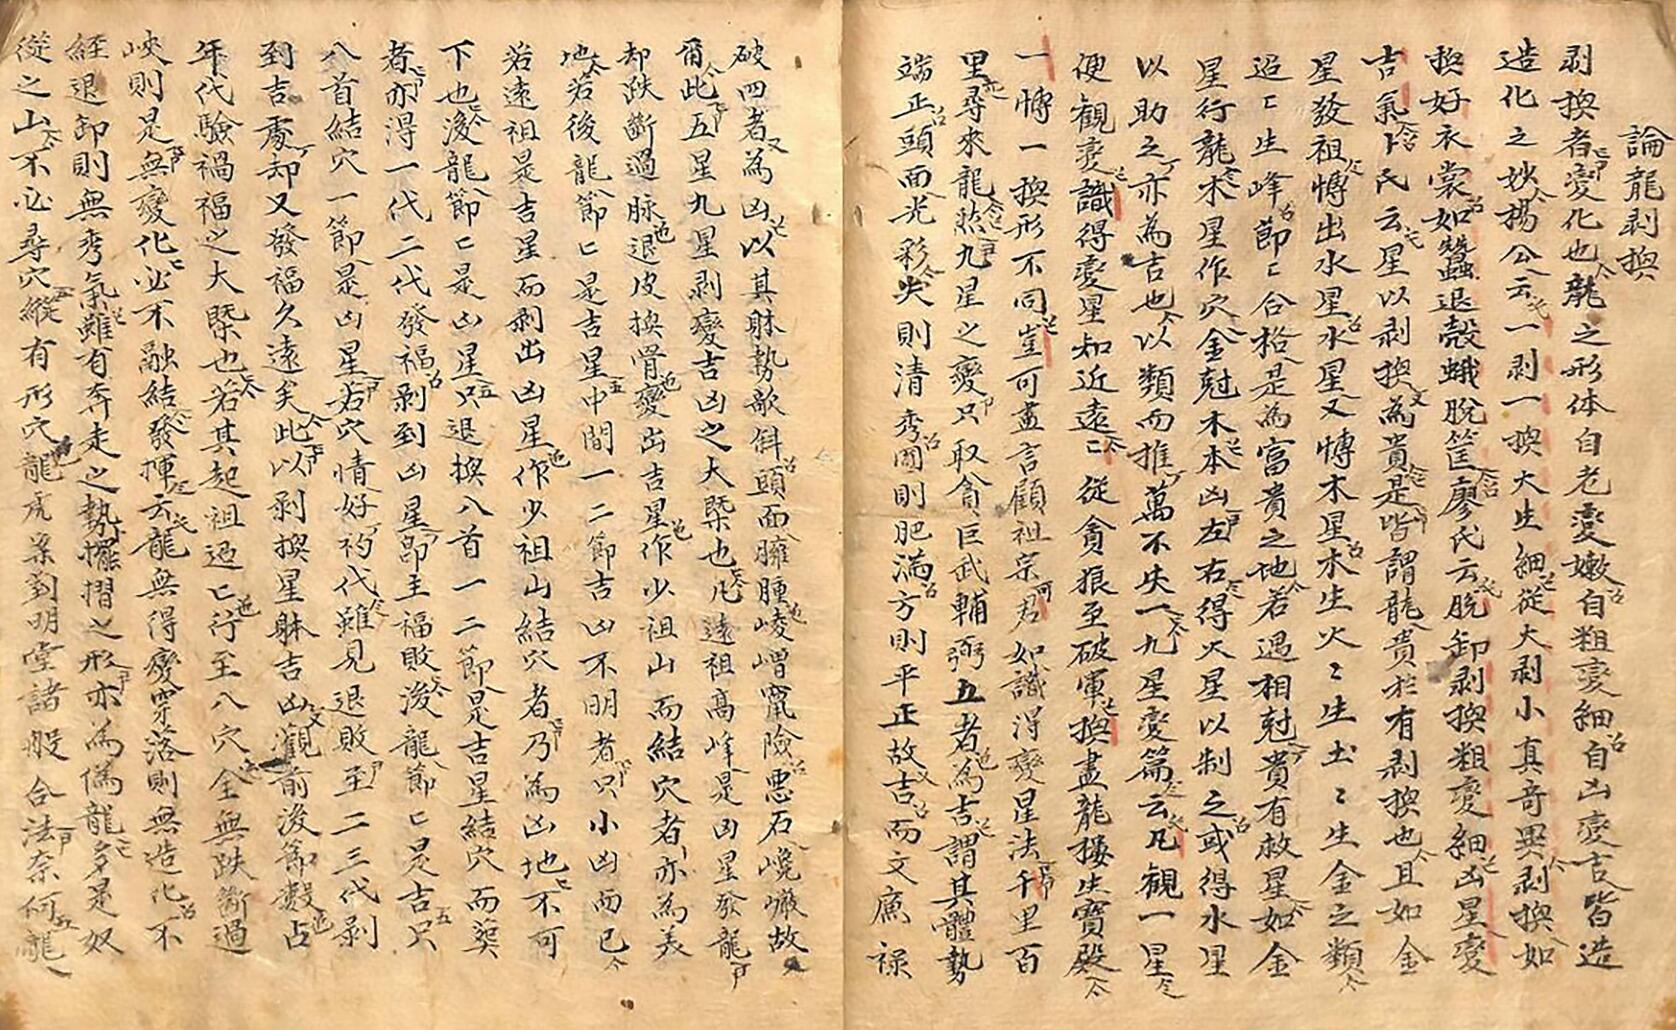 論龍剥換
剥換者變化也龍之形体自老變嫩自粗變細自凶變吉皆造
造化之妙楊公云一剥一換大生細從大剥小真奇異剥換如
換好衣裳如蠶退殼蛾脫筐廖氏云脫卸剥換粗變細凶星變
吉氣卜氏云星以剥換為貴是皆謂龍貴於有剥換也且如金
星發祖愽出水星水星又愽木星木生火〻生土〻生金之類
迢〻生峰節〻合格是為富貴之地若遇相尅貴有救星如金
星行龍木星作穴金尅木本凶左右得火星以制之或得水星
以助之亦為吉也以類而推萬不失一九星變篇云凡観一星
便観变識得變星知近遠〻從貪狼至破軍換盡龍樓生寶殿
一愽一換形不同豈可盡言顧祖宗君如識得變星法千里百
里尋來龍然九星之變只取貪巨武輔弼五者為吉謂其體勢
端正頭面光彩尖則清秀圎則肥滿方則平正故吉而文廉祿
破四者為凶以其躰勢欹斜頭面臃腫崚嶒竄險悪石巉巌故
爾此五星九星剥變吉凶之大槩也凡遠祖高峰是凶星發龍
却跌斷過脉退皮換骨變出吉星作少祖山而結穴者亦為美
地若後龍節〻是吉星中間一二節吉凶不明者只小凶而已
若遠祖是吉星而剥出凶星作少祖山結穴者乃為凶地不可
下也後龍節〻是凶星只退換入首一二節是吉星結穴而塟
者亦得一代二代發福剥到凶星節主福敗後龍節〻是吉只
入首結穴一節是凶星若穴情好礿代雖見退敗至二三代剥
到吉處却又發福久遠矣此以剥換星躰吉凶觀前後節數占
年代驗禍福之大槩也若其起祖迢〻行至入穴全無跌斷過
峽則是無變化必不融結發揮云龍無得變穿落則無造化不
経退卸則無秀氣雖有奔走之勢擺摺之形亦為偽龍多是奴
從之山不必尋穴縱有形穴龍虎案對明堂諸般合法奈何龍